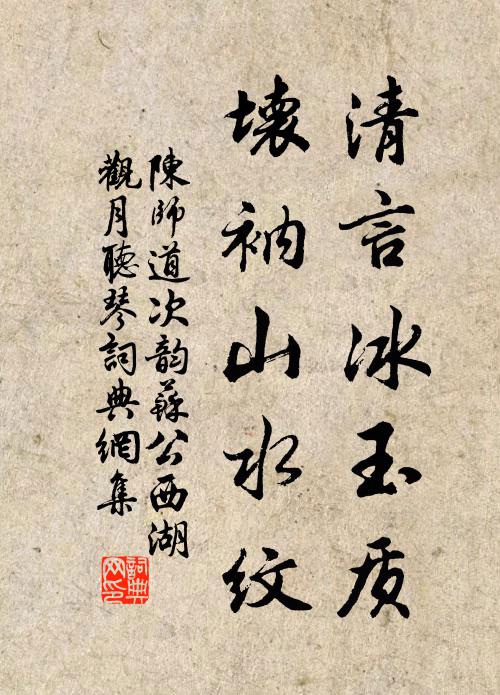 清言冰玉质
壊衲山水纹
陳師道次韵蘇公西湖
觀月聽琴詞典網集
詞典
网印